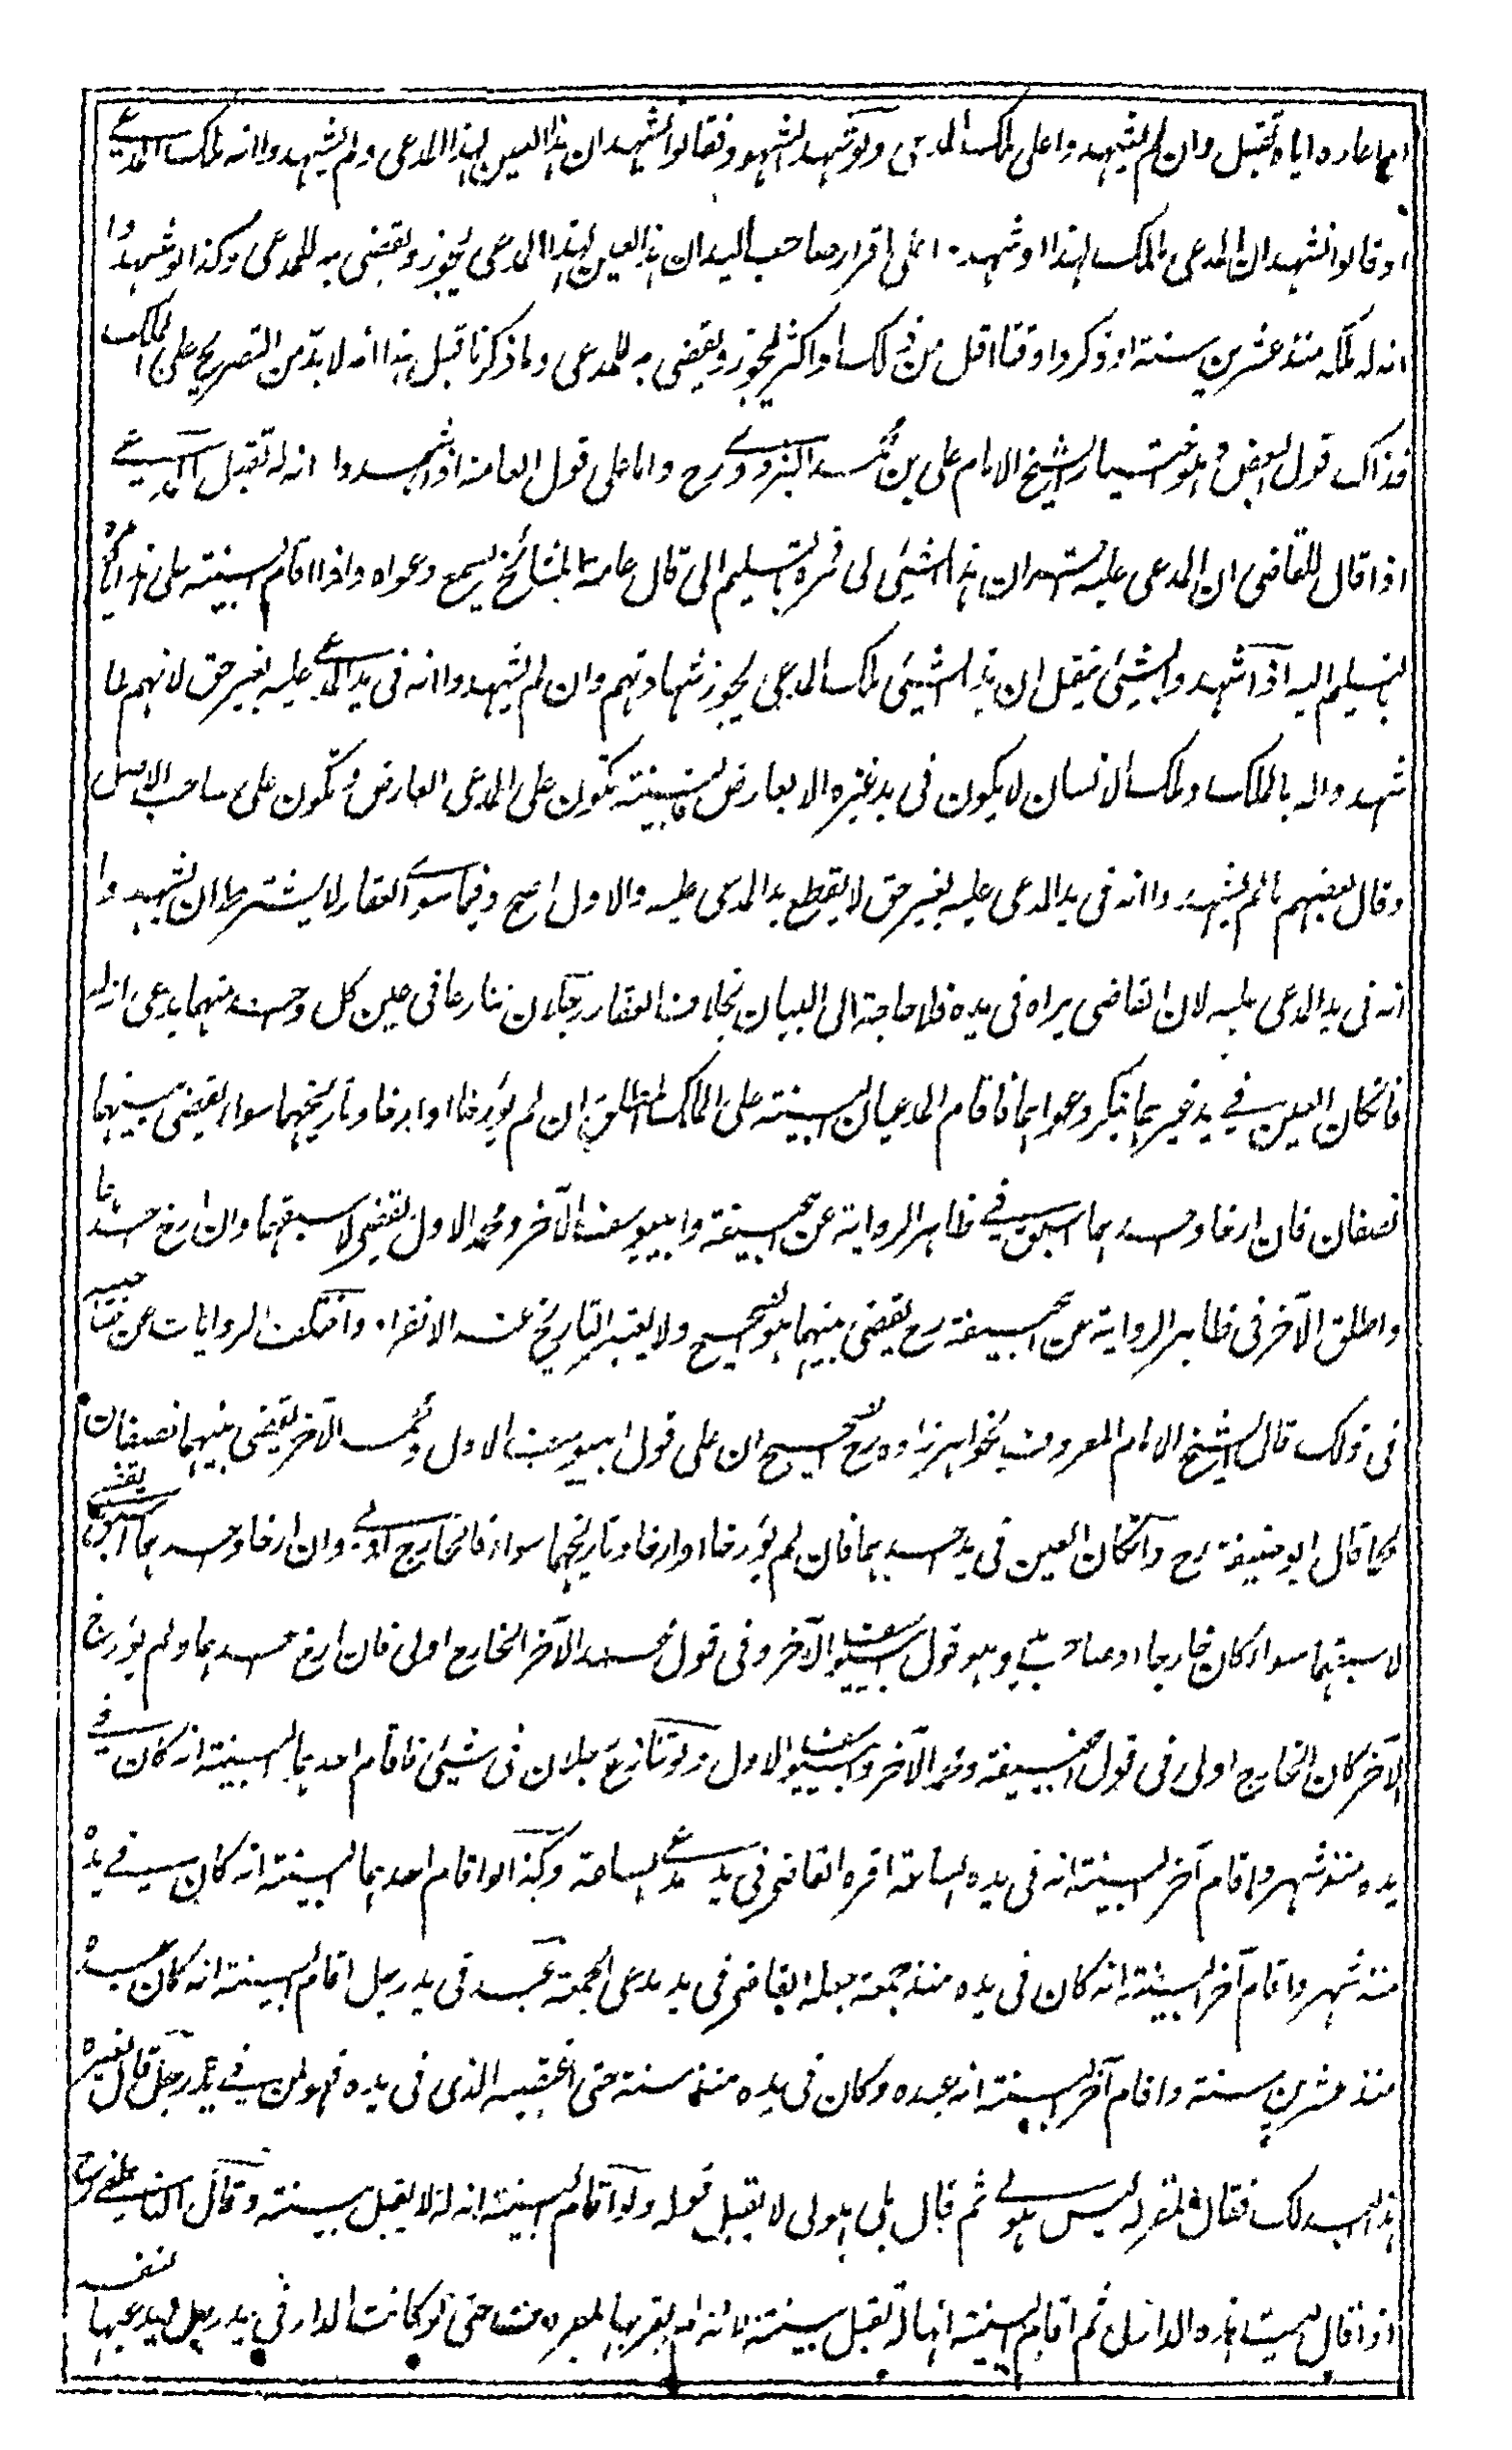 اعاره اياه تقبل وان لم يشهدوا على ملك المدعى ولو شهد الشهود فقالوا نشهد ان هذا العين لهذا المدعى ولم يشهدوا انه ملك المدعي
او قالوا نشهد ان المدعى ملك لهذا او شهدوا على اقرار صاحب اليد ان هذا العين لهذا المدعى يجوز ويقضى به للمدعى وكذا لو شهدوا
انه له ملكه منذ عشرين سنة او ذكروا وقتا اقل من ذلك او اكثر يجوز ويقضى به للمدعى وما ذكرنا قبل هذا انه لا بد من التصريح على الملك
فذاك قول البعض وهو اختيار الشيخ الامام على بن محمد البزدوي رح واما على قول العامة اذا شهدوا انه له تقبل المدعي
اذا قال للقاضى ان المدعى عليه ان هذا الشيئ لى فمره بالتسليم الى قال عامة المشائخ يسمع دعواه واذا اقام البينة على ذلك يامره
بتسليم اليه اذا شهدوا بشيئ منقل ان هذا الشيئ ملك المدعى يجوز شهادتهم وان لم يشهدوا انه فى يد المدعي عليه بغير حق لانهم لما
شهدوا له بالملك وملك الانسان لا يكون فى يد غيره الا بعارض فالبينة تكون على المدعى العارض ولا تكون على صاحب الاصل
وقال بعضهم ما لم يشهدوا انه فى يد المدعى عليه بغير حق لا يقطع يد المدعى عليه والاول اصح وفيما سوے العقار لا يشترط ان يشهدوا
انه فى يد المدعى عليه لان القاضى يراه فى يده فلا حاجة الى البيان بخلاف العقار رجلان تنازعا فى عين كل واحد منهما يدعى انه له
فان كان العين في يد غيرهما ينكر دعواهما فاقام المدعيان البينة على الملك المطلق ان لم يؤرخا او ارخا وتاريخهما سواء يقضى بينهما
نصفان فان ارخا واحدهما اسبق ففي ظاهر الرواية عن ابيحنيفة وابيوسف الآخر ومحمد الاول يقضى لاسبقهما وان ارخ احدهما
واطلق الآخر فى ظاهر الرواية عن ابيحنيفة رح يقضى بينهما هو الصحيح ولا يعتبر التاريخ عند الانفراد واختلفت الروايات عن صاحبيه
فى ذلك قال الشيخ الامام المعروف بخواهر زاده رح الصحيح ان على قول ابيوسف الاول ومحمد الآخر يقضى بينهما نصفان
كما قال ابو حنيفة رح وان كان العين فى يد احدهما فان لم يؤرخا او ارخا وتاريخهما سواء فالخارج اولے وان ارخا واحدهما اسبق يقضى
لاسبقهما سواء كان خارجا او صاحب يد وهو قول ابيوسف الآخر وفى قول محمد الآخر الخارج اولى فان ارخ احدهما ولم يؤرخ
الآخر كان الخارج اولى فى قول ابيحنيفة ومحمد الآخر وابيوسف الاول ولو تنازع رجلان فى شيئ فاقام احدهما البينة انه كان في
يده منذ شهر واقام آخر البينة انه فى يده الساعة اقره القاضى فى يد مدعي الساعة وكذا لو اقام احدهما البينة انه كان في يده
منذ شهر واقام آخر البينة انه كان فى يده منذ جمعة جعله القاضى فى يد مدعى الجمعة عبد فى يد رجل اقام البينة انه كان عبده
منذ عشرين سنة واقام آخر البينة انه عبده وكان فى يده منذ سنة حتى اغتصبه الذى فى يده فهو لمن في يده رجل قال لغيره
هذا العبد لك فقال المقر له ليس هو لي ثم قال بلى هو لى لا يقبل قوله ولو اقام البينة انه له لا يقبل بينته وقال الناطفي رح
اذا قال ليست هذه الدار لى ثم اقام البينة انها له تقبل بينته لانه لم يقر بها لمعروف حتى لو كانت الدار فى يد رجل يدعيها لنفسه